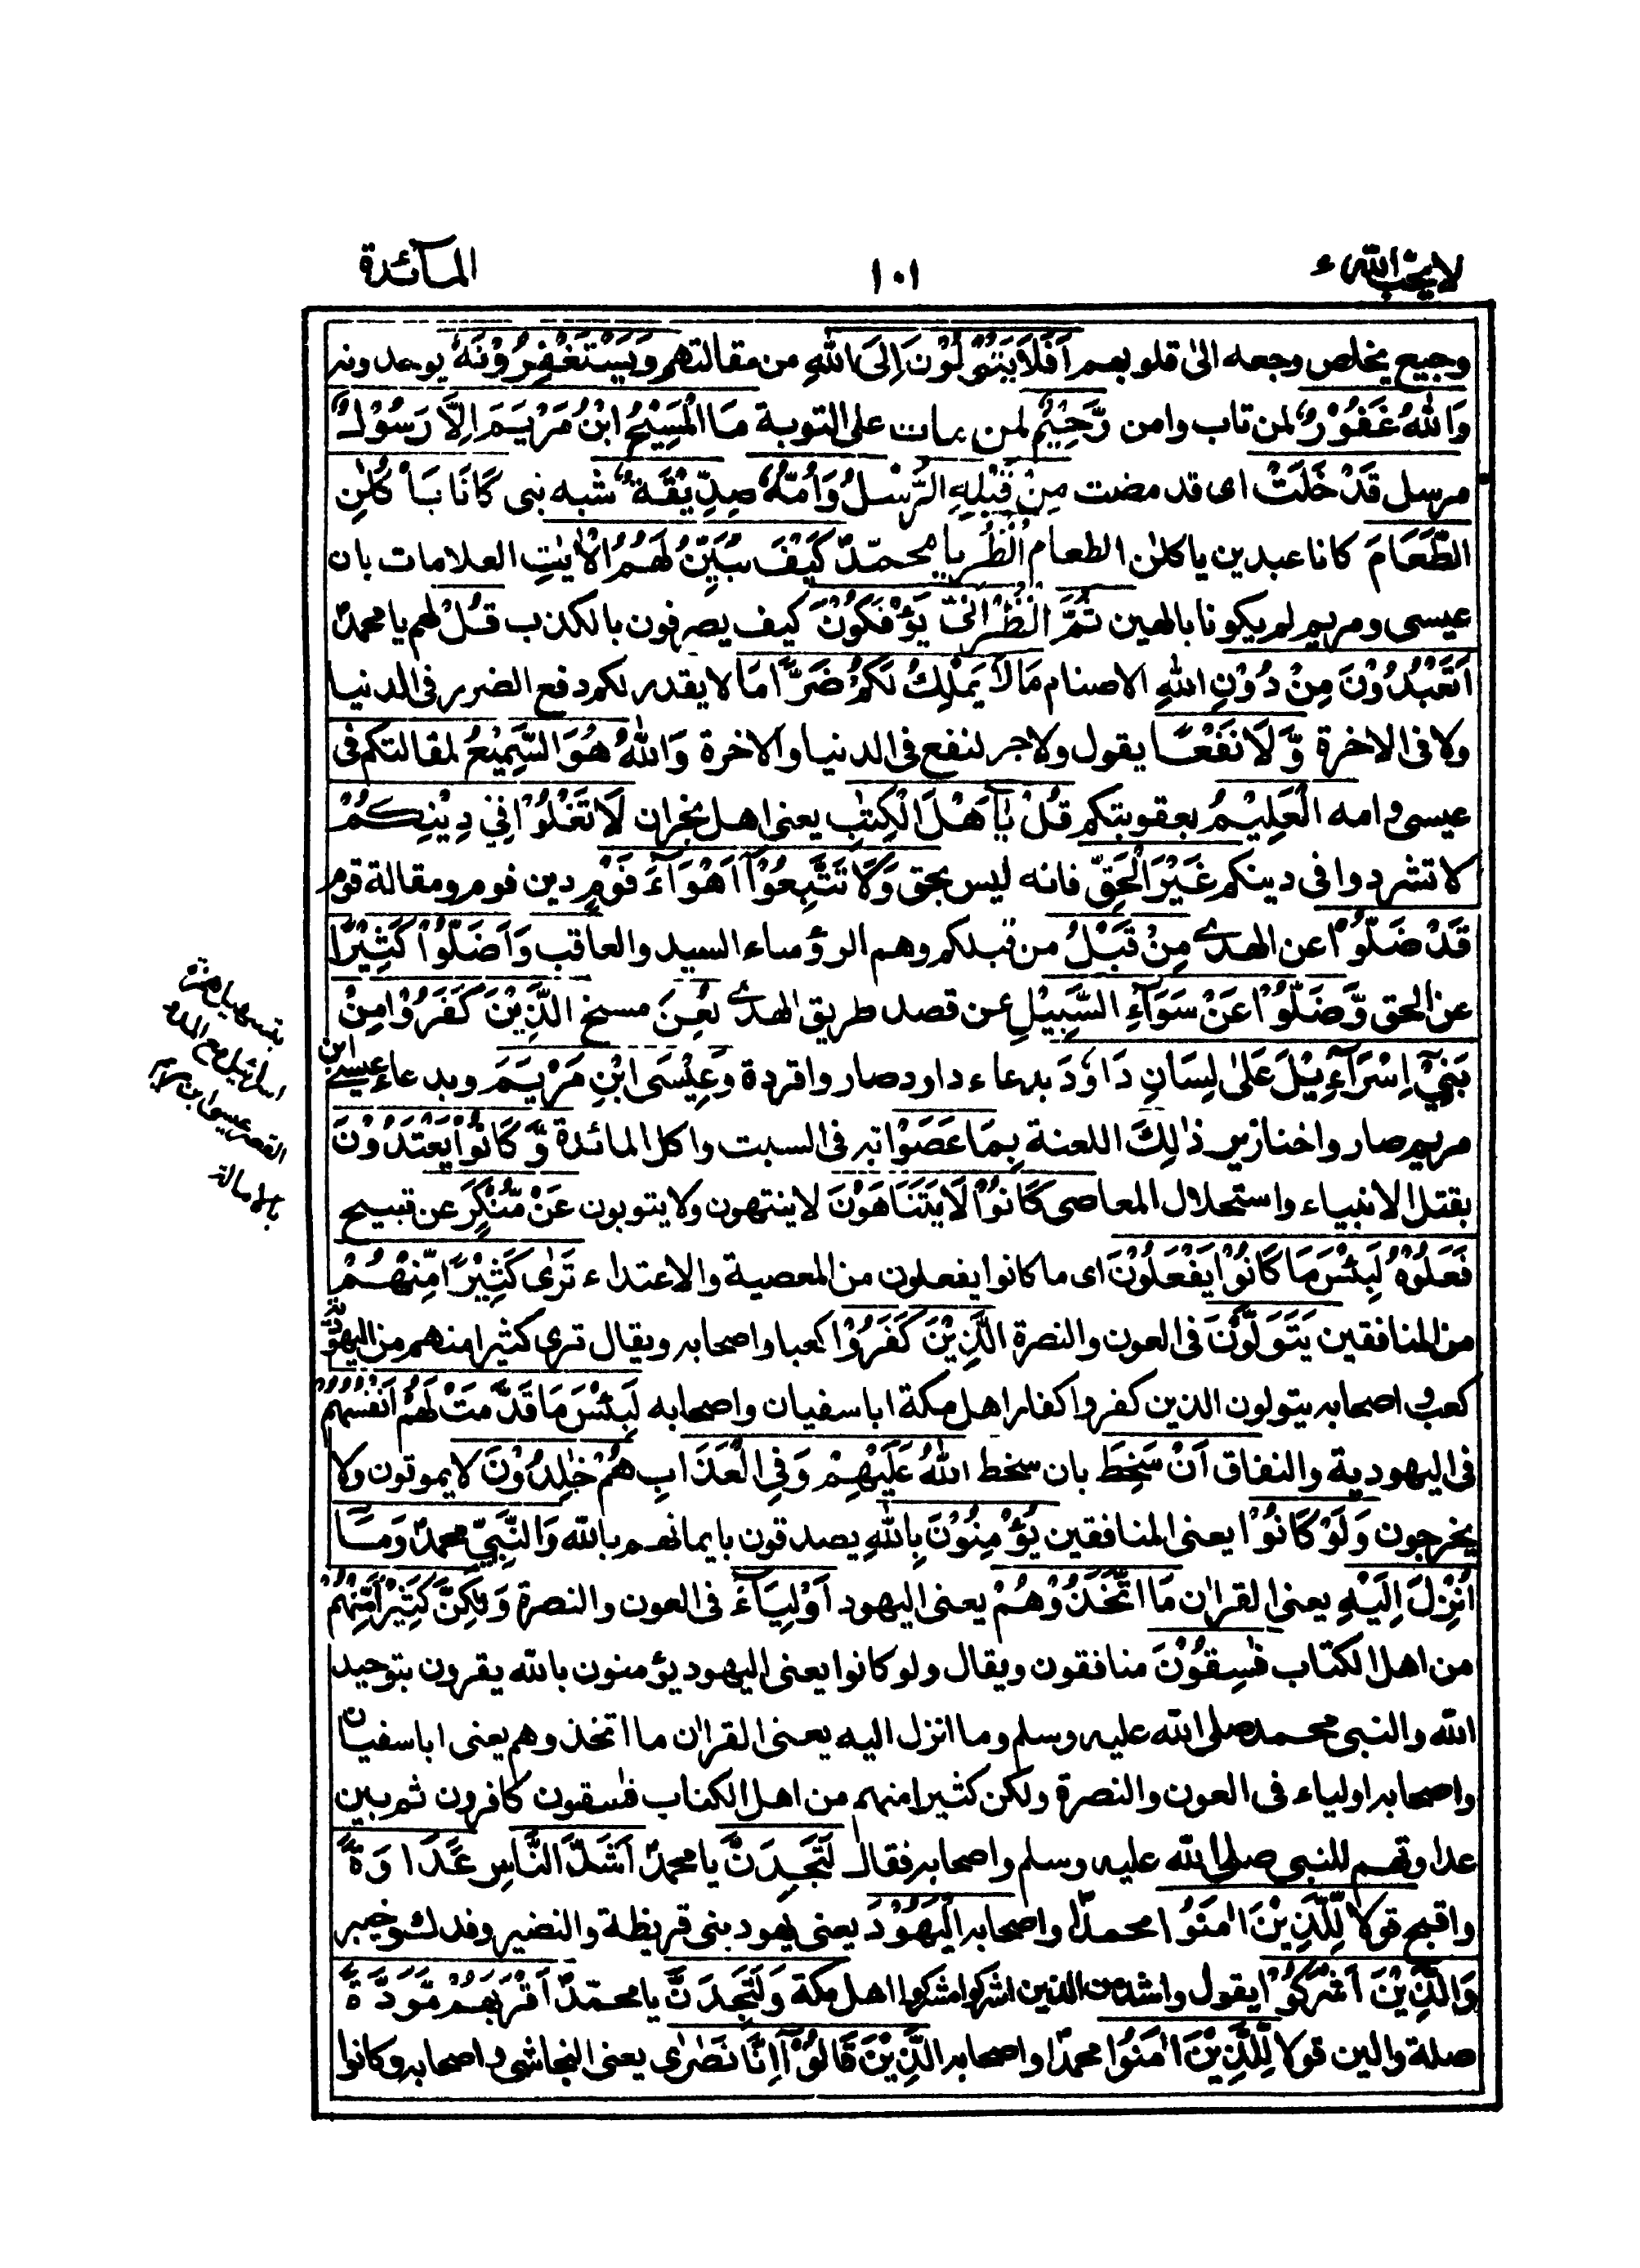 لا يحب الله ١٠١ المآئدة
وجيع يخلص وجعه الى قلوبهم اَفَلَا يَتُوْبُوْنَ اِلَى اللهِ من مقالتهم وَيَسْتَغْفِرُوْنَهٗ يوحدونه
وَاللهُ غَفُوْرٌ لمن تاب وامن رَّحِيْمٌ لمن مات على التوبة مَا الْمَسِيْحُ ابْنُ مَرْيَمَ اِلَّا رَسُوْلٌ
مرسل قَدْ خَلَتْ اى قد مضت مِنْ قَبْلِهِ الرُّسُلُ وَاُمُّهٗ صِدِّيْقَةٌ شبه نبى كَانَا يَاْكُلٰنِ
الطَّعَامَ كانا عبدين ياكلٰن الطعام اُنْظُرْ يا محمّد كَيْفَ نُبَيِّنُ لَهُمُ الْاٰيٰتِ العلامات بان
عيسى ومريم لم يكونا بالهين ثُمَّ انْظُرْ اَنّٰى يُؤْفَكُوْنَ كيف يصرفون بالكذب قُلْ لهم يا محمد
اَتَعْبُدُوْنَ مِنْ دُوْنِ اللهِ الاصنام مَا لَا يَمْلِكُ لَكُمْ ضَرًّا ما لا يقدر لكم دفع الضرر فى الدنيا
ولا فى الاخرة وَّلَا نَفْعًا يقول ولا جر لنفع فى الدنيا والاخرة وَاللهُ هُوَ السَّمِيْعُ لمقالتكم فى
عيسى وامه الْعَلِيْمُ بعقوبتكم قُلْ يٰٓاَهْلَ الْكِتٰبِ يعنى اهل نجران لَا تَغْلُوْا فِيْ دِيْنِكُمْ
لا تشددوا فى دينكم غَيْرَ الْحَقِّ فانه ليس بحق وَلَا تَتَّبِعُوْٓا اَهْوَآءَ قَوْمٍ دين قوم ومقالة قوم
قَدْ ضَلُّوْا عن الهدے مِنْ قَبْلُ من قبلكم وهم الرؤساء السيد والعاقب وَاَضَلُّوْا كَثِيْرًا
عن الحق وَّضَلُّوْا عَنْ سَوَآءِ السَّبِيْلِ عن قصد طريق الهدے لُعِنَ مسخ الَّذِيْنَ كَفَرُوْا مِنْ
بَنِيْٓ اِسْرَآءِيْلَ عَلٰى لِسَانِ دَاوٗدَ بدعاء داود صاروا قردة وَعِيْسَى ابْنِ مَرْيَمَ وبدعاء عيسے ابن
مريم صاروا خنازير ذٰلِكَ اللعنة بِمَا عَصَوْا به فى السبت واكل المائدة وَّكَانُوْا يَعْتَدُوْنَ
بقتل الانبياء واستحلال المعاصى كَانُوْا لَا يَتَنَاهَوْنَ لا ينتهون ولا يتوبون عَنْ مُّنْكَرٍ عن قبيح
فَعَلُوْهُ لَبِئْسَ مَا كَانُوْا يَفْعَلُوْنَ اى ما كانوا يفعلون من المعصية والاعتداء تَرٰى كَثِيْرًا مِّنْهُمْ
من المنافقين يَتَوَلَّوْنَ فى العون والنصرة الَّذِيْنَ كَفَرُوْا كعبا واصحابه ويقال ترى كثيرا منهم من اليهود
كعب واصحابه يتولون الذين كفروا كفار اهل مكة ابا سفيان واصحابه لَبِئْسَ مَا قَدَّمَتْ لَهُمْ اَنْفُسُهُمْ
فى اليهودية والنفاق اَنْ سَخِطَ بان سخط اللهُ عَلَيْهِمْ وَفِى الْعَذَابِ هُمْ خٰلِدُوْنَ لا يموتون ولا
يخرجون وَلَوْ كَانُوْا يعنى المنافقين يُؤْمِنُوْنَ بِاللهِ يصدقون بايمانهم بالله وَالنَّبِيِّ محمد وَمَآ
اُنْزِلَ اِلَيْهِ يعنى القراٰن مَا اتَّخَذُوْهُمْ يعنى اليهود اَوْلِيَآءَ فى العون والنصرة وَلٰكِنَّ كَثِيْرًا مِّنْهُمْ
من اهل الكتاب فٰسِقُوْنَ منافقون ويقال ولو كانوا يعنى اليهود يؤمنون بالله يقرون بتوحيد
الله والنبى محمد صلى الله عليه وسلم وما انزل اليه يعنى القراٰن ما اتخذوهم يعنى ابا سفيان
واصحابه اولياء فى العون والنصرة ولكن كثيرا منهم من اهل الكتاب فٰسقون كافرون ثم بين
عداوتهم للنبى صلى الله عليه وسلم واصحابه فقال لَتَجِدَنَّ يا محمد اَشَدَّ النَّاسِ عَدَاوَةً
واقبح قولا لِّلَّذِيْنَ اٰمَنُوا محمدا واصحابه الْيَهُوْدَ يعنى يهود بنى قريظة والنضير وفدك وخيبر
وَالَّذِيْنَ اَشْرَكُوْا يقول واشد من الذين اشركوا مشركوا اهل مكة وَلَتَجِدَنَّ يا محمّد اَقْرَبَهُمْ مَّوَدَّةً
صلة والين قولا لِّلَّذِيْنَ اٰمَنُوا محمدا واصحابه الَّذِيْنَ قَالُوْٓا اِنَّا نَصٰرٰى يعنى النجاشى واصحابه وكانوا
بتسهيل همزة
اسرائيل مع المد و
القصر عيسى ابن مريم
بالامالة